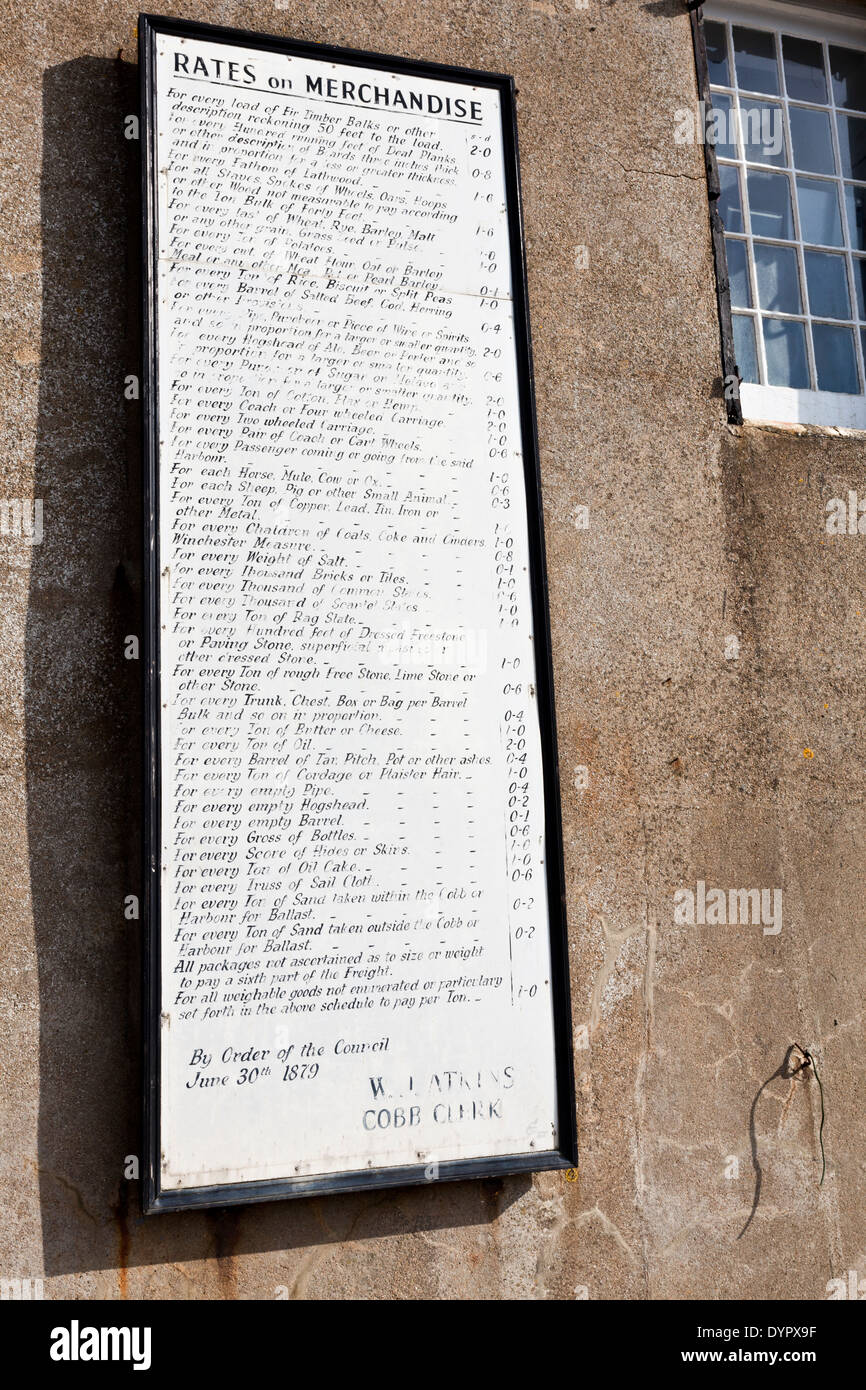 RATES on MERCHANDISE
s - d
For every load of Fir Timber Balks or other
description reckoning 50 feet to the load. 2-0
For every Hundred running feet of Deal Planks
or other description of Boards three inches thick
and in proportion for a less or greater thickness. 0-8
For every Fathom of Lathwood. - - - 1-6
For all Staves, Spokes of Wheels, Oars, Hoops
or other Wood not measurable to pay according
to the Ton Bulk of Forty Feet. - - 1-6
For every last of Wheat, Rye, Barley, Malt
or any other grain, Grass Seed or Pulse. - 1-0
For every Ton of Potatoes. - - - 1-0
For every cwt. of Wheat Flour, Oat or Barley
Meal or any other Meal, Pot or Pearl Barley. 0-1
For every Ton of Rice, Biscuit or Split Peas 1-0
For every Barrel of Salted Beef, Cod, Herring
or other Provisions. - - - 0-4
For every Pipe, Puncheon or Piece of Wine or Spirits
and so in proportion for a larger or smaller quantity. 2-0
For every Hogshead of Ale, Beer or Porter and so
in proportion for a larger or smaller quantity. 0-6
For every of Sugar or
so in proportion for a larger or smaller quantity. 2-0
For every Ton of Cotton, Flax or Hemp. - 1-0
For every Coach or Four wheeled Carriage. 2-0
For every Two wheeled Carriage. - - 1-0
For every Pair of Coach or Cart Wheels. - 0-6
For every Passenger coming or going from the said
Harbour. - - - - - 1-0
For each Horse, Mule, Cow or Ox. - - 0-6
For each Sheep, Pig or other Small Animal. - 0-3
For every Ton of Copper, Lead, Tin, Iron or
other Metal. - - - -
For every Chaldron of Coals, Coke and Cinders,
Winchester Measure. - - - 1-0
For every Weight of Salt. - - - 0-8
For every Thousand Bricks or Tiles. - - 0-1
For every Thousand of Common Slates. - 1-0
For every Thousand of Slates - 0-6
For every Ton of Rag Slate. - - - 1-0
For every Hundred feet of Dressed Freestone
or Paving Stone, superficial or
other dressed Stone. - - - 1-0
For every Ton of rough Free Stone, Lime Stone or
other Stone. - - - - 0-6
For every Trunk, Chest, Box or Bag per Barrel
Bulk and so on in proportion. - - - 0-4
For every Ton of Butter or Cheese. - - 1-0
For every Ton of Oil. - - - - 2-0
For every Barrel of Tar, Pitch, Pot or other ashes. 0-4
For every Ton of Cordage or Plaister Hair. - 1-0
For every empty Pipe. - - - - 0-4
For every empty Hogshead. - - - 0-2
For every empty Barrel. - - - - 0-1
For every Gross of Bottles. - - - - 0-6
For every Score of Hides or Skins. - - 1-0
For every Ton of Oil Cake. - - - - 1-0
For every Truss of Sail Cloth. - - - 0-6
For every Ton of Sand taken within the Cobb or
Harbour for Ballast. - - - - 0-2
For every Ton of Sand taken outside the Cobb or
Harbour for Ballast. - - - - 0-2
All packages not ascertained as to size or weight
to pay a sixth part of the Freight.
For all weighable goods not enumerated or particulary
set forth in the above schedule to pay per Ton. - 1-0
By Order of the Council
June 30th 1879
W.J. ATKINS
COBB CLERK
alamy
Image ID: DYPX9F
www.alamy.com